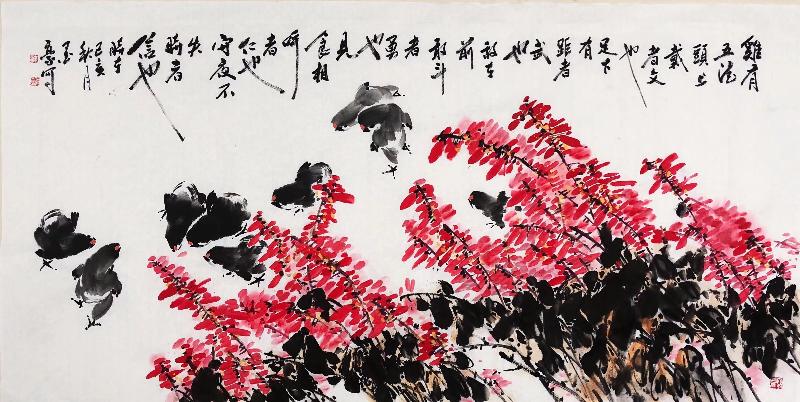 雞有
五德
頭上
戴
者文
也
足下
有
距者
武
也
敌在
前
敢斗
者
勇
也
見
食相
呼
者
仁也
守夜不
失
時者
信也
時在
己亥
秋月